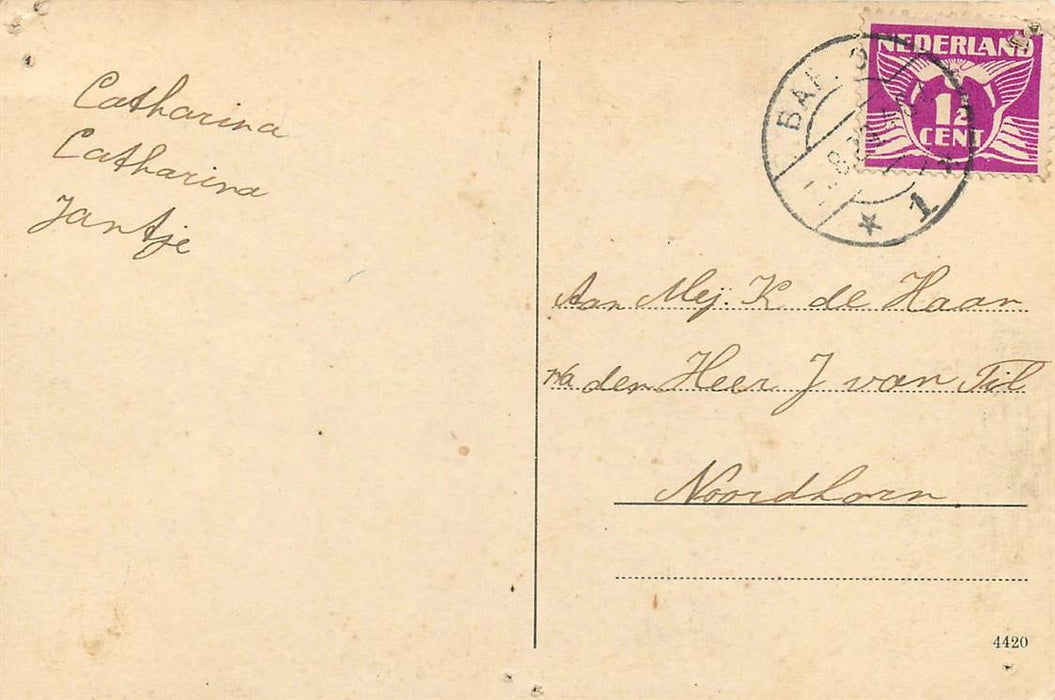 Catharina
Catharina
Jantje
NEDERLAND
1½
CENT
1
Aan Mej. K de Haan
p/a den Heer J van Til
Noordhorn
4420